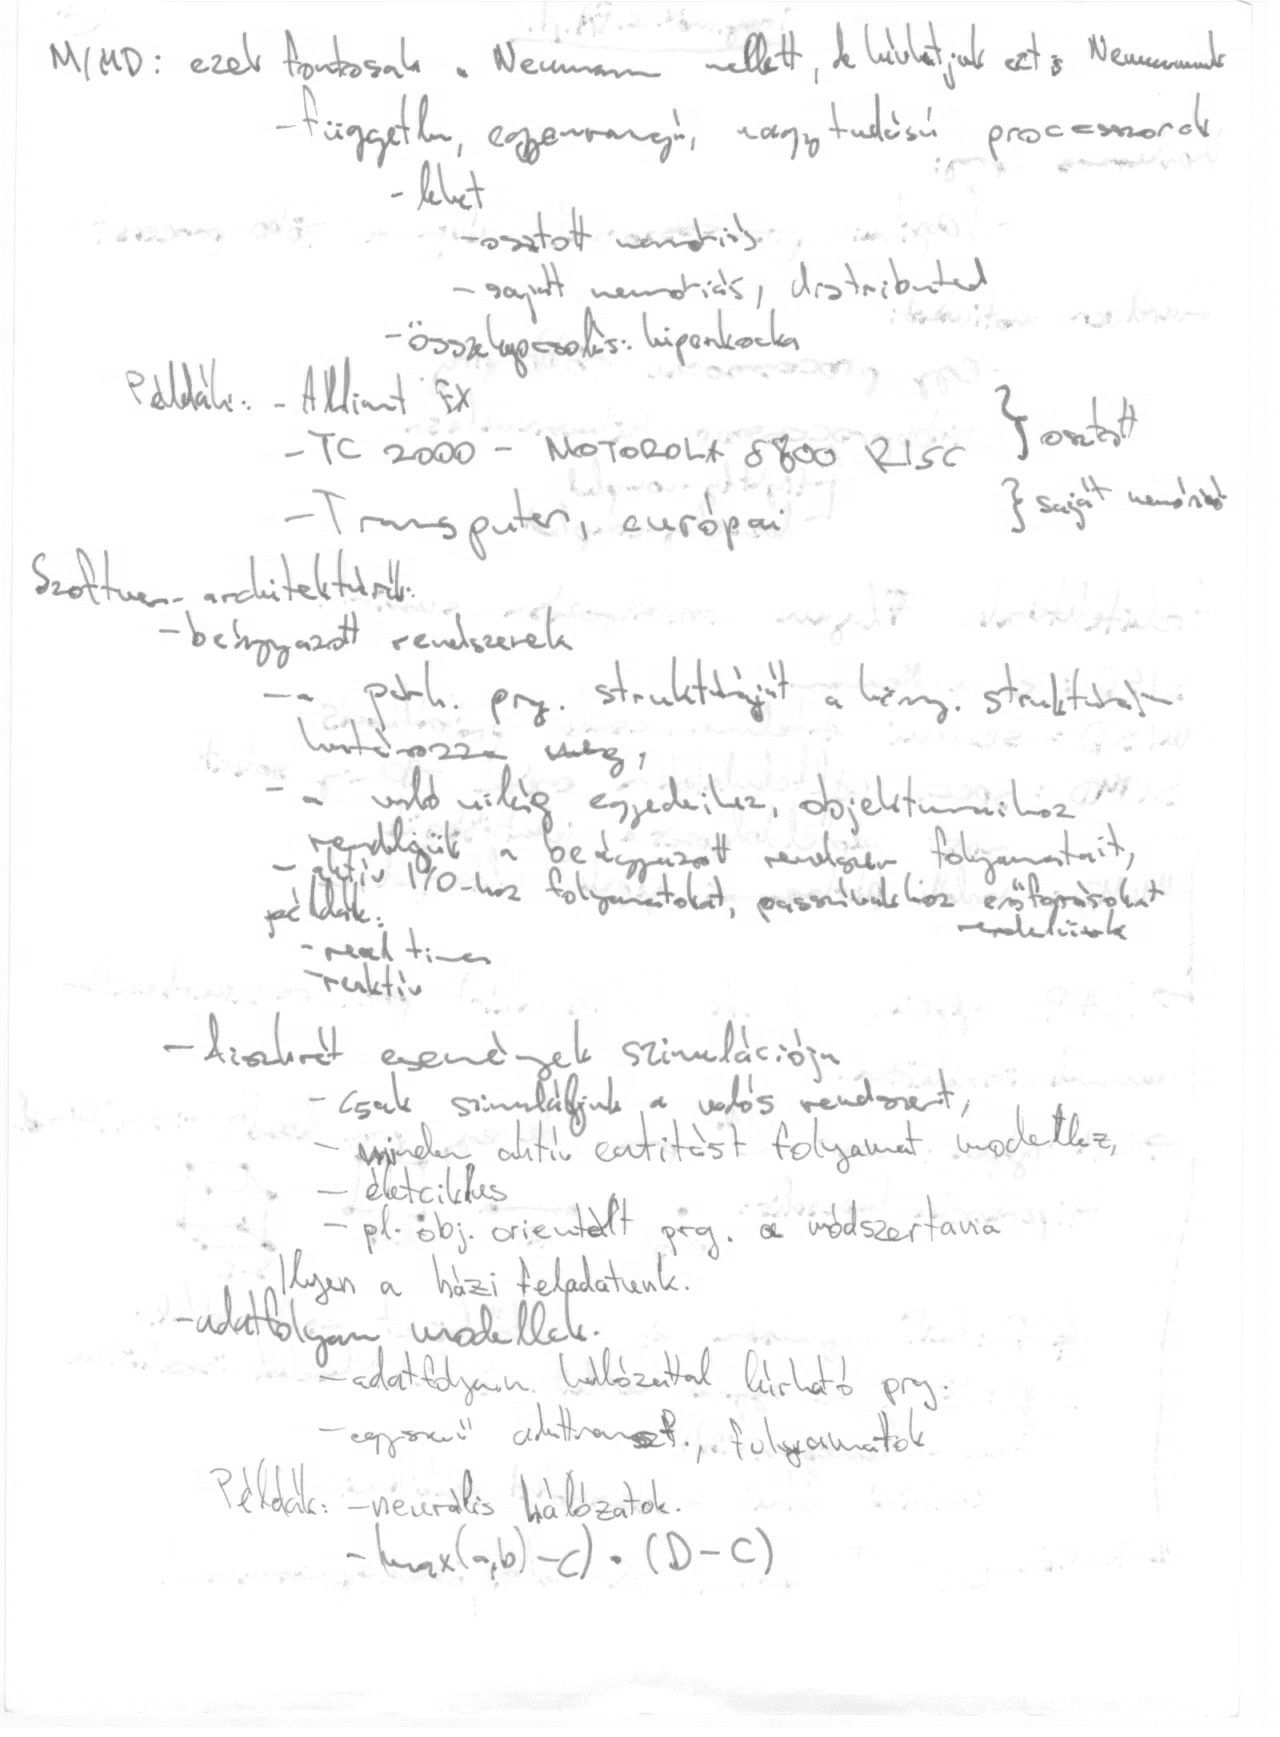 MIMD: ezek fontosak a Neumann mellett, de hívhatjuk ezt is Neumannak
- független, egyenrangú, nagy tudású processzorok
- lehet
- osztott memóriás
- saját memóriás, distributed
- összekapcsolás: hiperkocka
Példák: - Alliant FX
- TC 2000 - MOTOROLA 8800 RISC } osztott
- Transputer, európai } saját memóriás
Szoftver-architektúrák:
- beágyazott rendszerek
- a párh. prg. struktúráját a körny. struktúrája
határozza meg,
- a való világ egyedeihez, objektumaihoz
rendeljük a beágyazott rendszer folyamatait,
- aktív I/O-hoz folyamatokat, passzívakhoz erőforrásokat
rendelünk
példák:
- real time
- reaktív
- diszkrét események szimulációja
- csak szimuláljuk a valós rendszert,
- minden aktív entitást folyamat modellez,
- életciklus
- pl. obj. orientált prg. a módszertana
Ilyen a házi feladatunk.
- adatfolyam modellek.
- adatfolyam hálózattal leírható prg.
- egyszerű adattranszf., folyamatok
Példák: - neurális hálózatok.
- (max(a,b) - C) • (D - C)